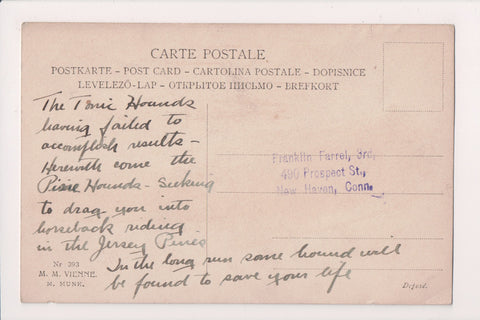 CARTE POSTALE
POSTKARTE - POST CARD - CARTOLINA POSTALE - DOPISNICE
LEVELEZÖ-LAP - ОТКРЫТОЕ ПИСЬМО - BREFKORT
The Tonic Hounds
having failed to
accomplish results -
Herewith come the
Pixie Hounds - seeking
to drag you into
horseback riding
in the Jersey Pines
In the long run some hound will
be found to save your life
Franklin Farrel, 3rd,
490 Prospect St.,
New Haven, Conn.
Nr 393
M. M. VIENNE.
M. MUNK.
Déposé.